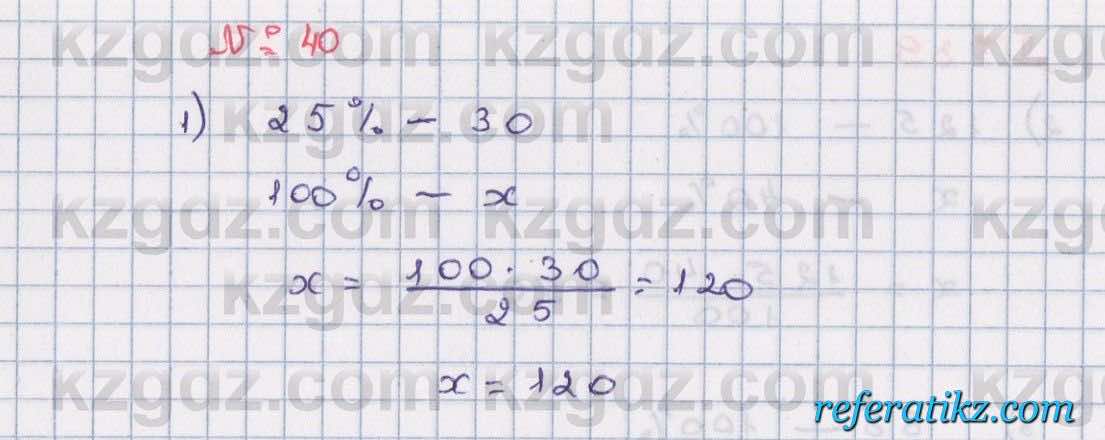 № 40
1) 25% — 30
100% — x
x = 100 · 30 / 25 = 120
x = 120
kzgdz.com
referatikz.com